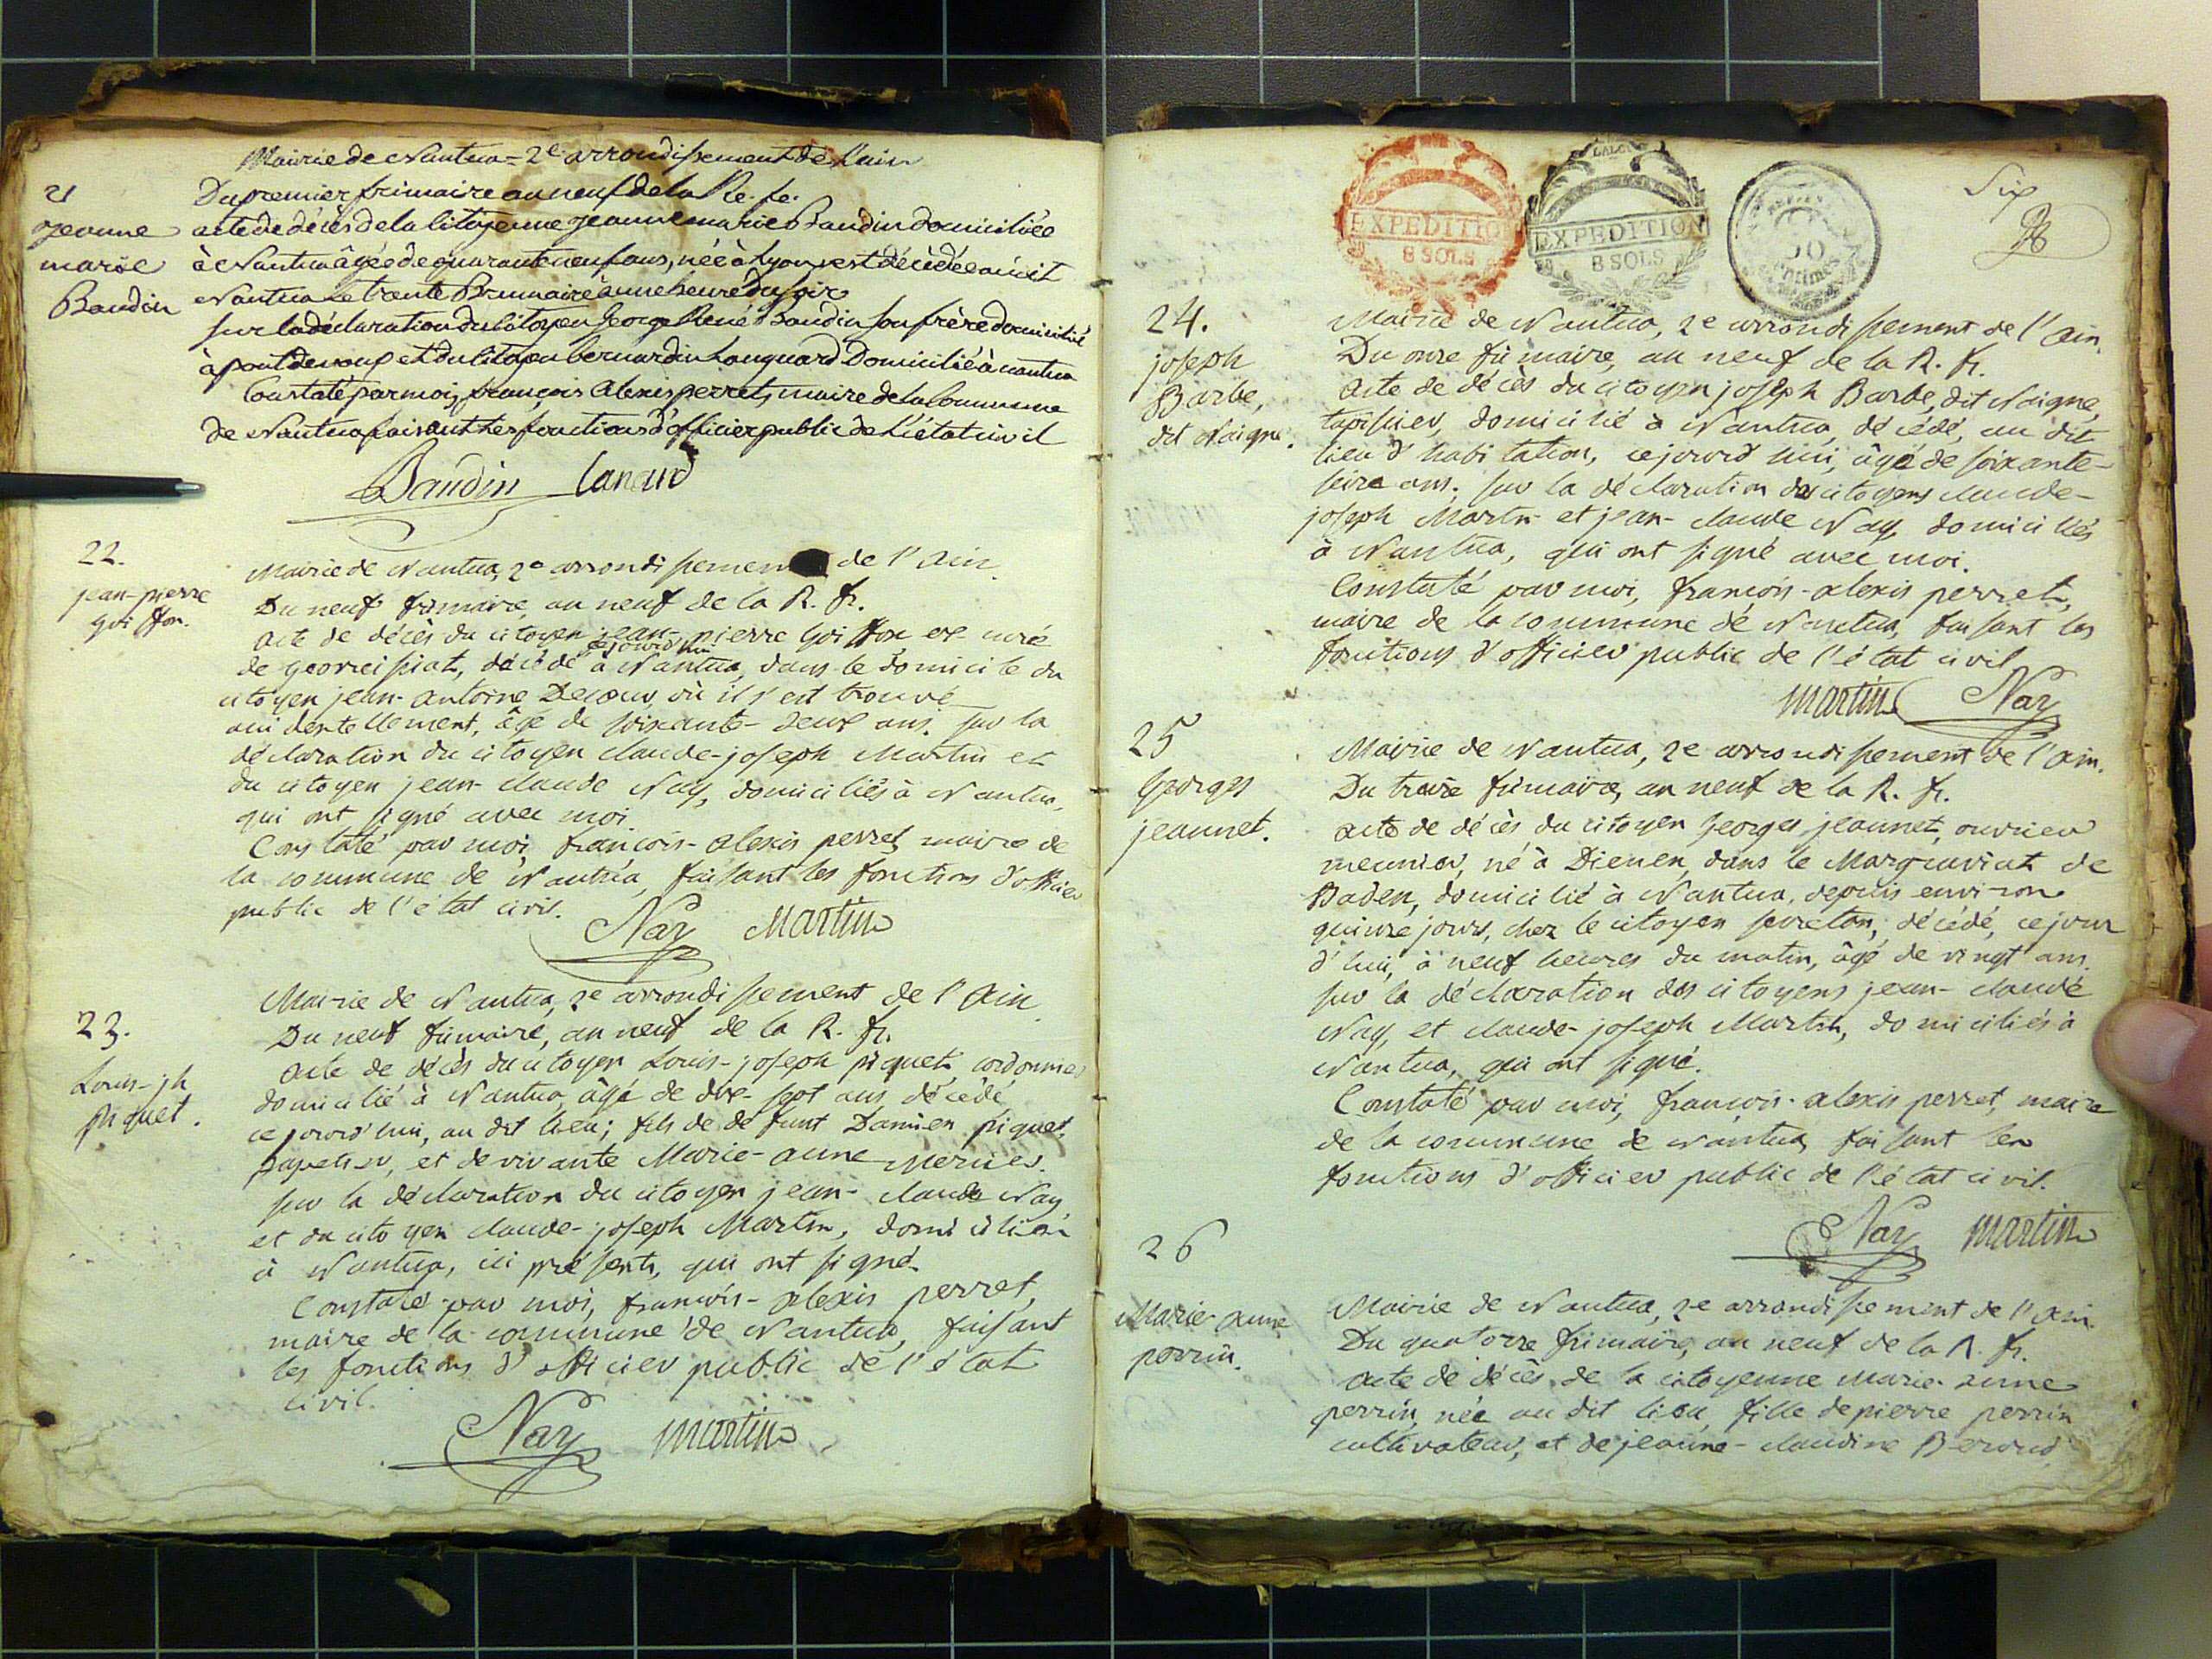 Mairie de Nantua = 2e arrondissement de L'ain
21
Jeanne
marie
Baudin
Du premier frimaire an neuf de la Re. fe.
acte de décès de la Citoyenne Jeanne marie Baudin domiciliée
à Nantua âgée de quarante neuf ans, née à Lyon est décédée audit
Nantua Le trente Brumaire à une heure du soir
sur la déclaration du Citoyen George René Baudin son frère domicilié
à pont de et du Citoyen bernardin Domicilié à nantua
Constaté par moi, françois Alexis perret, maire de la Commune
de Nantua faisant les fonctions d'officier public de L'état civil
Baudin Canard
22.
jean-pierre
goiffon.
Mairie de Nantua, 2e arrondissement de l'ain.
Du neuf frimaire, an neuf de la R. fr.
acte de décès du citoyen jean-pierre goiffon ex curé
ce jourd'hui
de Georreissiat, décédé à Nantua, dans le domicile du
citoyen jean-antoine où il s'est trouvé
accidentellement, âgé de soixante-deux ans. sur la
déclaration du citoyen claude-joseph Martin et
du citoyen jean-claude Nay, domiciliés à Nantua,
qui ont signé avec moi.
Constaté par moi, françois-alexis perret, maire de
la commune de Nantua, faisant les fonctions d'officier
public de l'état civil.
Nay Martin
23.
Louis-jh
piquet.
Mairie de Nantua, 2e arrondissement de l'ain.
Du neuf frimaire, an neuf de la R. fr.
acte de décès du citoyen Louis-joseph piquet, cordonnier
domicilié à Nantua, âgé de dix-sept ans, décédé
ce jourd'hui, au dit lieu; fils de défunt Damien piquet,
papetier, et de vivante Marie-anne Mercier.
sur la déclaration du citoyen jean-claude Nay
et du citoyen claude-joseph Martin, domiciliés
à Nantua, ici présents, qui ont signé.
Constaté par moi, françois-alexis perret,
maire de la commune de Nantua, faisant
les fonctions d'officier public de l'état
civil.
Nay martin
EXPEDITION
8 SOLS
EXPEDITION
8 SOLS
50
centimes
Six
24.
joseph
Barbe,
dit Naigue.
Mairie de Nantua, 2e arrondissement de l'ain.
Du onze frimaire, an neuf de la R. fr.
acte de décès du citoyen joseph Barbe, dit Naigue,
tapissier, domicilié à Nantua, décédé, au dit
lieu d'habitation, ce jourd'hui, âgé de soixante-
seize ans. sur la déclaration des citoyens claude-
joseph Martin et jean-claude Nay, domiciliés
à Nantua, qui ont signé avec moi.
Constaté par moi, françois-alexis perret,
maire de la commune de Nantua, faisant les
fonctions d'officier public de l'état civil
martin Nay
25
Georges
jeannet.
Mairie de Nantua, 2e arrondissement de l'ain.
Du treize frimaire, an neuf de la R. fr.
acte de décès du citoyen Georges jeannet, ouvrier
meunier, né à Dienen, dans le Margraviat de
Baden, domicilié à Nantua, depuis environ
quinze jours, chez le citoyen décédé, ce jour
d'hui, à neuf heures du matin, âgé de vingt ans.
sur la déclaration des citoyens jean-claude
Nay, et claude-joseph Martin, domiciliés à
Nantua, qui ont signé.
Constaté par moi, françois-alexis perret, maire
de la commune de Nantua, faisant les
fonctions d'officier public de l'état civil.
Nay martin
26
Marie-anne
perrin.
Mairie de Nantua, 2e arrondissement de l'ain.
Du quatorze frimaire, an neuf de la R. fr.
acte de décès de la citoyenne Marie-anne
perrin, née au dit lieu, fille de pierre perrin
cultivateur, et de jeanne-claudine Beroud,